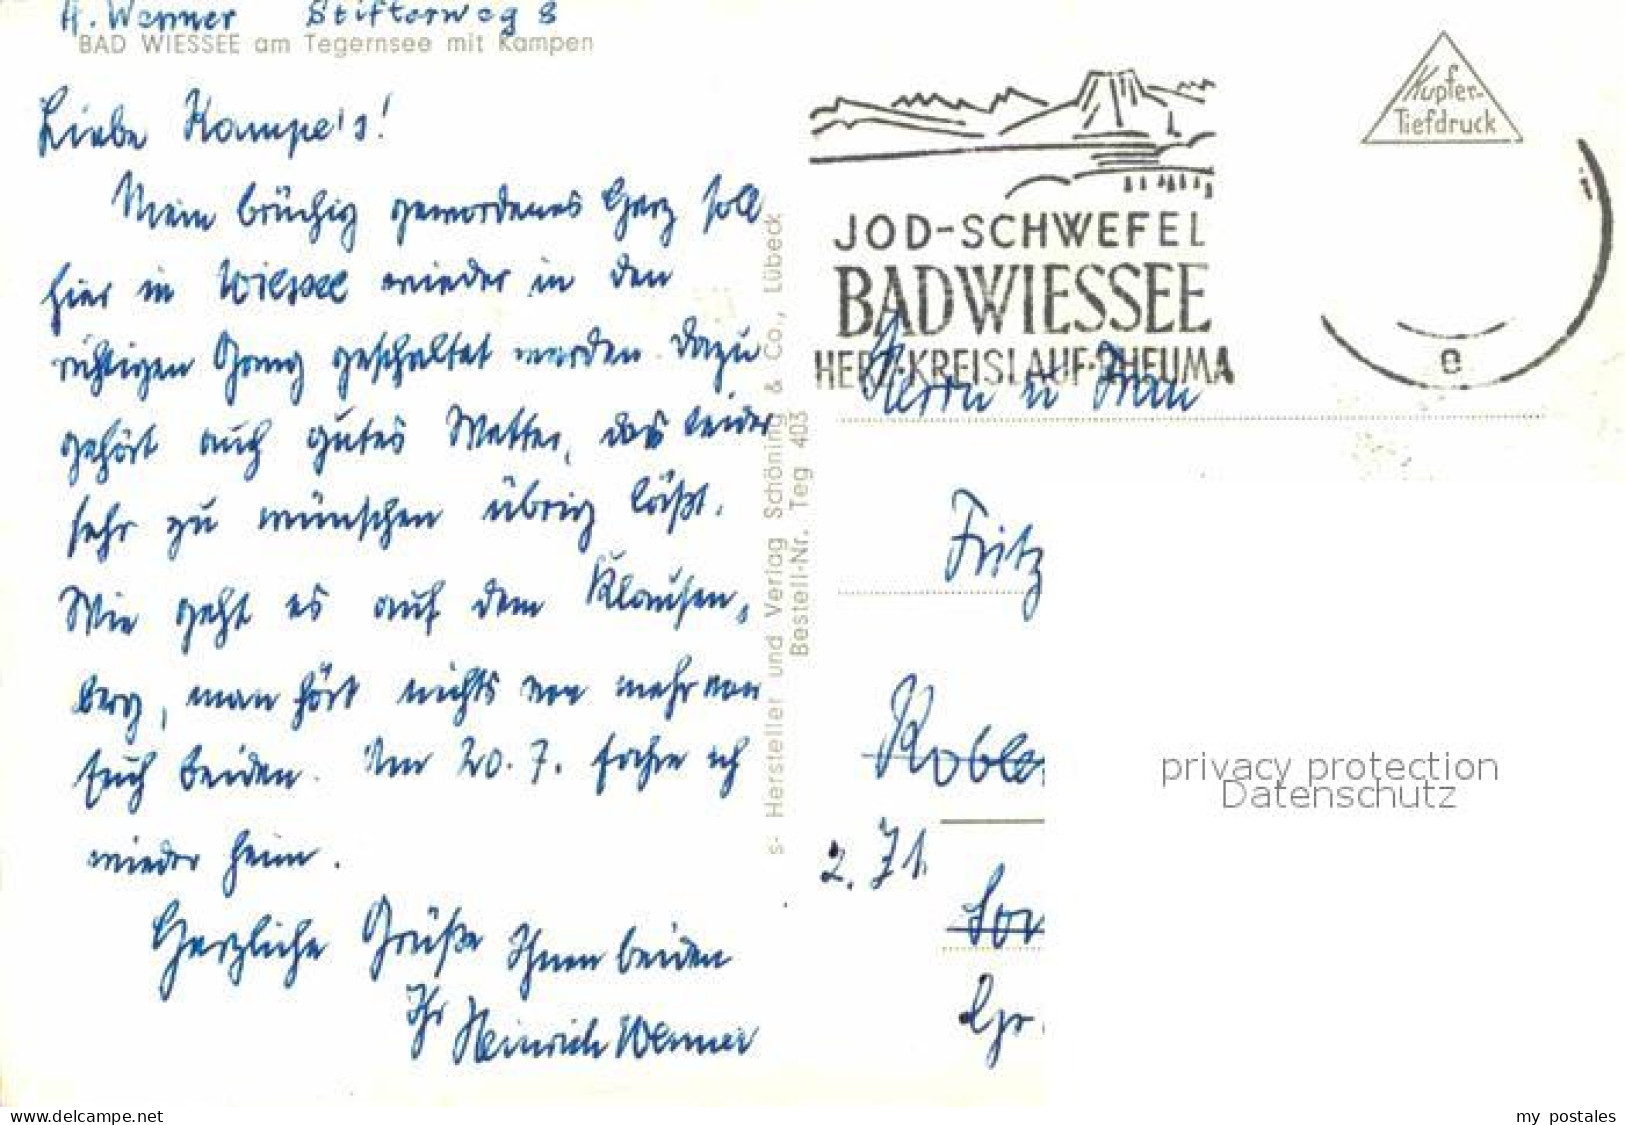 H. Wenner Stifterweg 8
BAD WIESSEE am Tegernsee mit Kampen
Liebe Kampe's!
Mein brüchig gewordenes Herz soll
hier in Wiessee wieder in den
richtigen Gang geschaltet werden. Dazu
gehört auch gutes Wetter, das leider
sehr zu wünschen übrig läßt.
Wie geht es auf dem Klausen-
berg, man hört nichts mehr von
Euch beiden. Am 20. 7. fahre ich
wieder heim.
Herzliche Grüße Ihnen beiden
Ihr Heinrich Wenner
s- Hersteller und Verlag Schöning & Co., Lübeck
Bestell-Nr. Teg 403
Kupfer-
Tiefdruck
JOD-SCHWEFEL
BAD WIESSEE
HERZ-KREISLAUF-RHEUMA
e
Herrn u Frau
Fritz
Koble
2. 71.
Gr.
privacy protection
Datenschutz
www.delcampe.net
my_postales